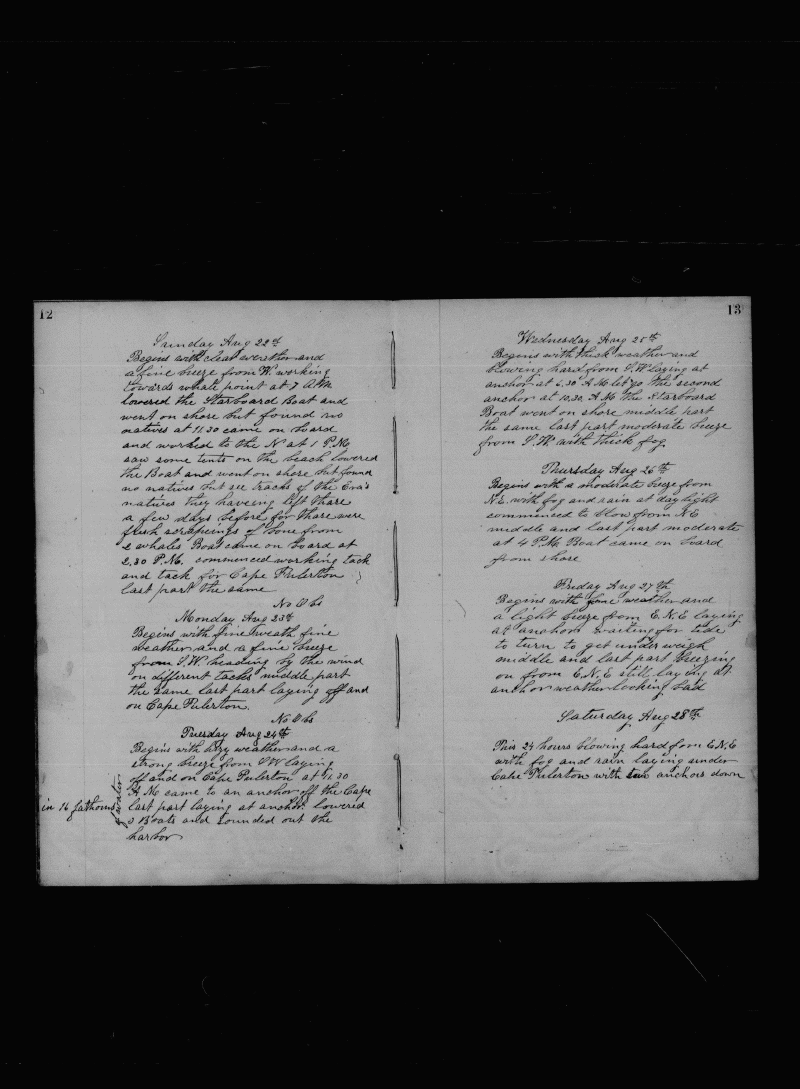 12
Sunday Aug 22th
Begins with clear weather and
a fine breeze from W. working
towards whale point at 7 A M
lowered the Starboard Boat and
went on shore but found no
natives at 11.30 came on board
and worked to the N at 1 P.M.
saw some tents on the beach lowered
the Boat and went on shore but found
no natives but see tracks of the Era's
natives they haveing left thare
a few days before for thare were
fresh scrapeings of bone from
2 whales Boat came on board at
2,30 P.M. commenced working tack
and tack for Cape Fulerton
last part the same
No Obs
Monday Aug 23th
Begins with fine weath fine
weather and a fine breeze
from S.W. heading by the wind
on different tacks middle part
the same last part laying off and
on Cape Fulerton
No Obs
Tuesday Aug 24th
Begins with hazy weather and a
strong breeze from SW laying
off and on Cape Fulerton at 11.30
A M came to an anchor off the Cape
in 16 fathoms of water
last part laying at anchor lowered
2 Boats and sounded out the
harbor
13
Wednesday Aug 25th
Begins with thick weather and
blowing hard from S.W laying at
anchor at 6.30 A.M let go the second
anchor at 10.30 A.M the Starboard
Boat went on shore middle part
the same last part moderate breeze
from S.W. with thick fog
Thursday Aug 26th
Begins with a moderate breeze from
N.E. with fog and rain at day light
commenced to blow from N.E
middle and last part moderate
at 4 P.M. Boat came on board
from shore
Friday Aug 27th
Begins with fine weather and
a light breeze from E.N.E laying
at anchor waiting for tide
to turn to get under weigh
middle and last part breezing
on from E.N.E still laying at
anchor weather looking bad
Saturday Aug 28th
This 24 hours blowing hard from E.N.E
with fog and rain laying under
Cape Fulerton with two anchors down